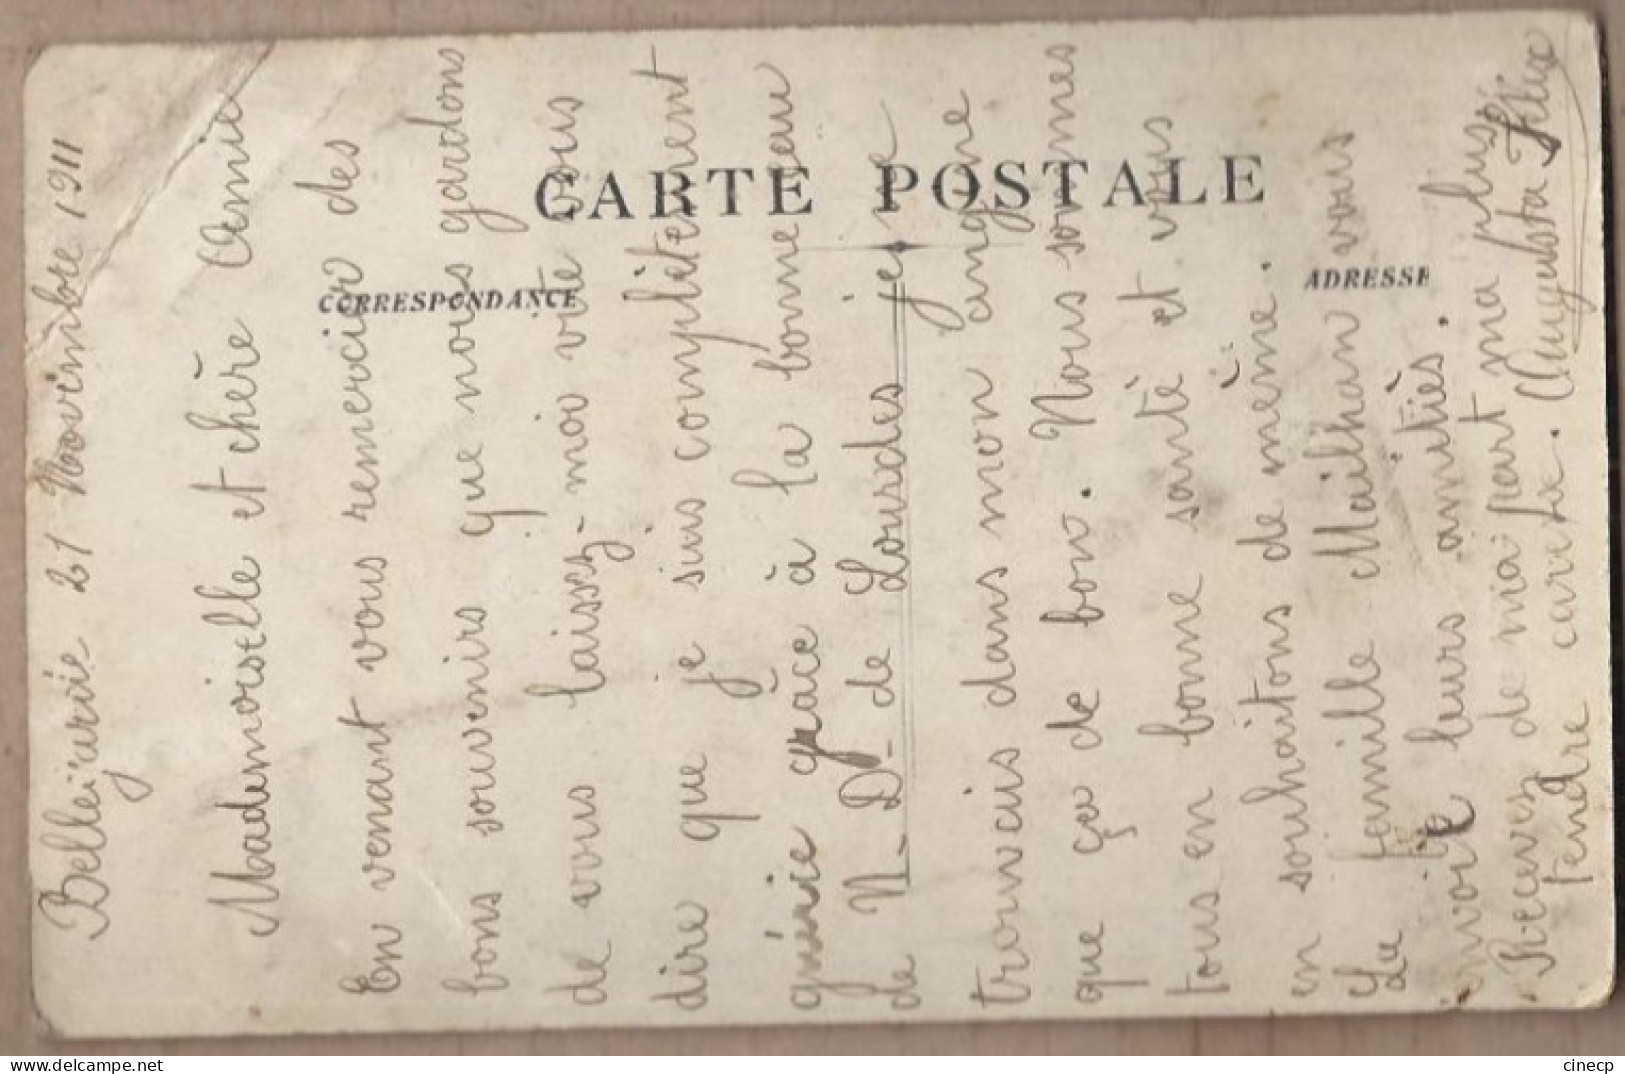 Belleïarvie 21 Novembre 1911
Mademoiselle et chère Amie
En venant vous remercier des
bons souvenirs que nous gardons
de vous laissez-moi vite vous
dire que je suis complètement
guérie grâce à la bonne eau
de N-D- de Lourdes je me
trouvais dans mon angine
que ça de bon. Nous sommes
tous en bonne santé et vous
en souhaitons de même.
La famille Mailhan vous
envoie leurs amitiés.
Recevez de ma part ma plus
tendre caresse. Augusta Félix
CARTE POSTALE
CORRESPONDANCE
ADRESSE
cinecp